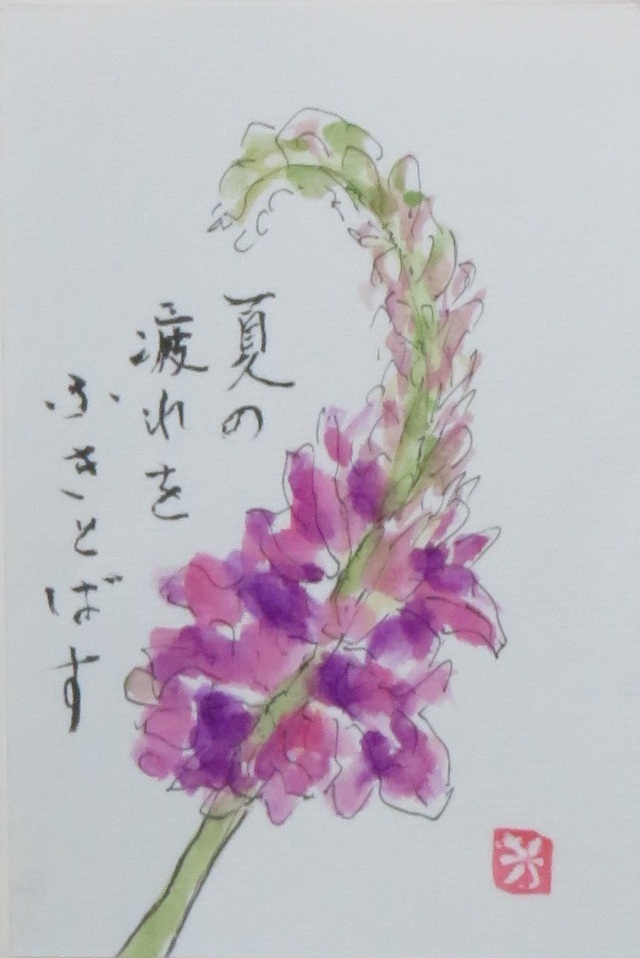 夏の
疲れを
ふきとばす